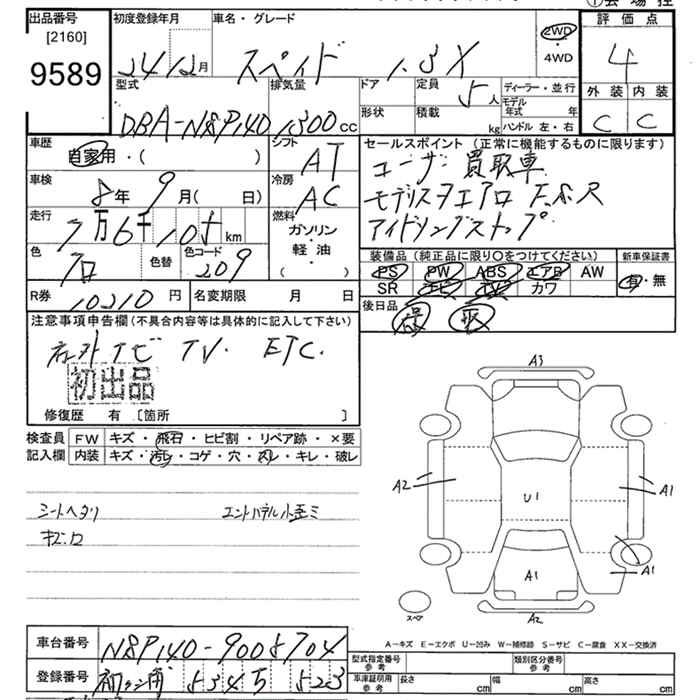 出品番号
[2160]
9589
初度登録年月
24/12月
車名・グレード
スペイド 1.3X
2WD
・
4WD
評価点
4
外装 内装
C C
型式
DBA-NSP140
排気量
1300cc
ドア
定員
5人
形状
積載
kg
ディーラー・並行
モデル
年式 年
ハンドル 左・右
車歴
自家用・( )
シフト
AT
車検
8年 9月( 日)
冷房
AC
走行
7万6千10 km
燃料
ガソリン
・
軽・油
( )
色
色替
色コード
209
R券
10210円
名変期限 月 日
セールスポイント (正常に機能するものに限ります)
ユーザー買取車
モデリスタエアロ F.S.R
アイドリングストップ
装備品 (純正品に限り〇をつけてください)
新車保証書
PS PW ABS エアB AW
SR ナビ TV カワ
有・無
後日品
注意事項申告欄 (不具合内容等は具体的に記入して下さい)
社外ナビ TV. ETC.
初出品
修復歴 有 [箇所 ]
検査員 FW キズ・飛石・ヒビ割・リペア跡・×要
記入欄 内装 キズ・汚レ・コゲ・穴・スレ・キレ・破レ
シートヘタリ
キズ.ロ
エンドパネル小歪ミ
A3
A2
A1
U1
A1
A1
スペア
A2
A-キズ E-エクボ U-凹み W-補修跡 S-サビ C-腐食 XX-交換済
車台番号
NSP140-9005704
登録番号
5345 523
型式指定番号
参考
類別区分番号
参考
車庫証明用
参考
長さ cm
幅 cm
高さ cm